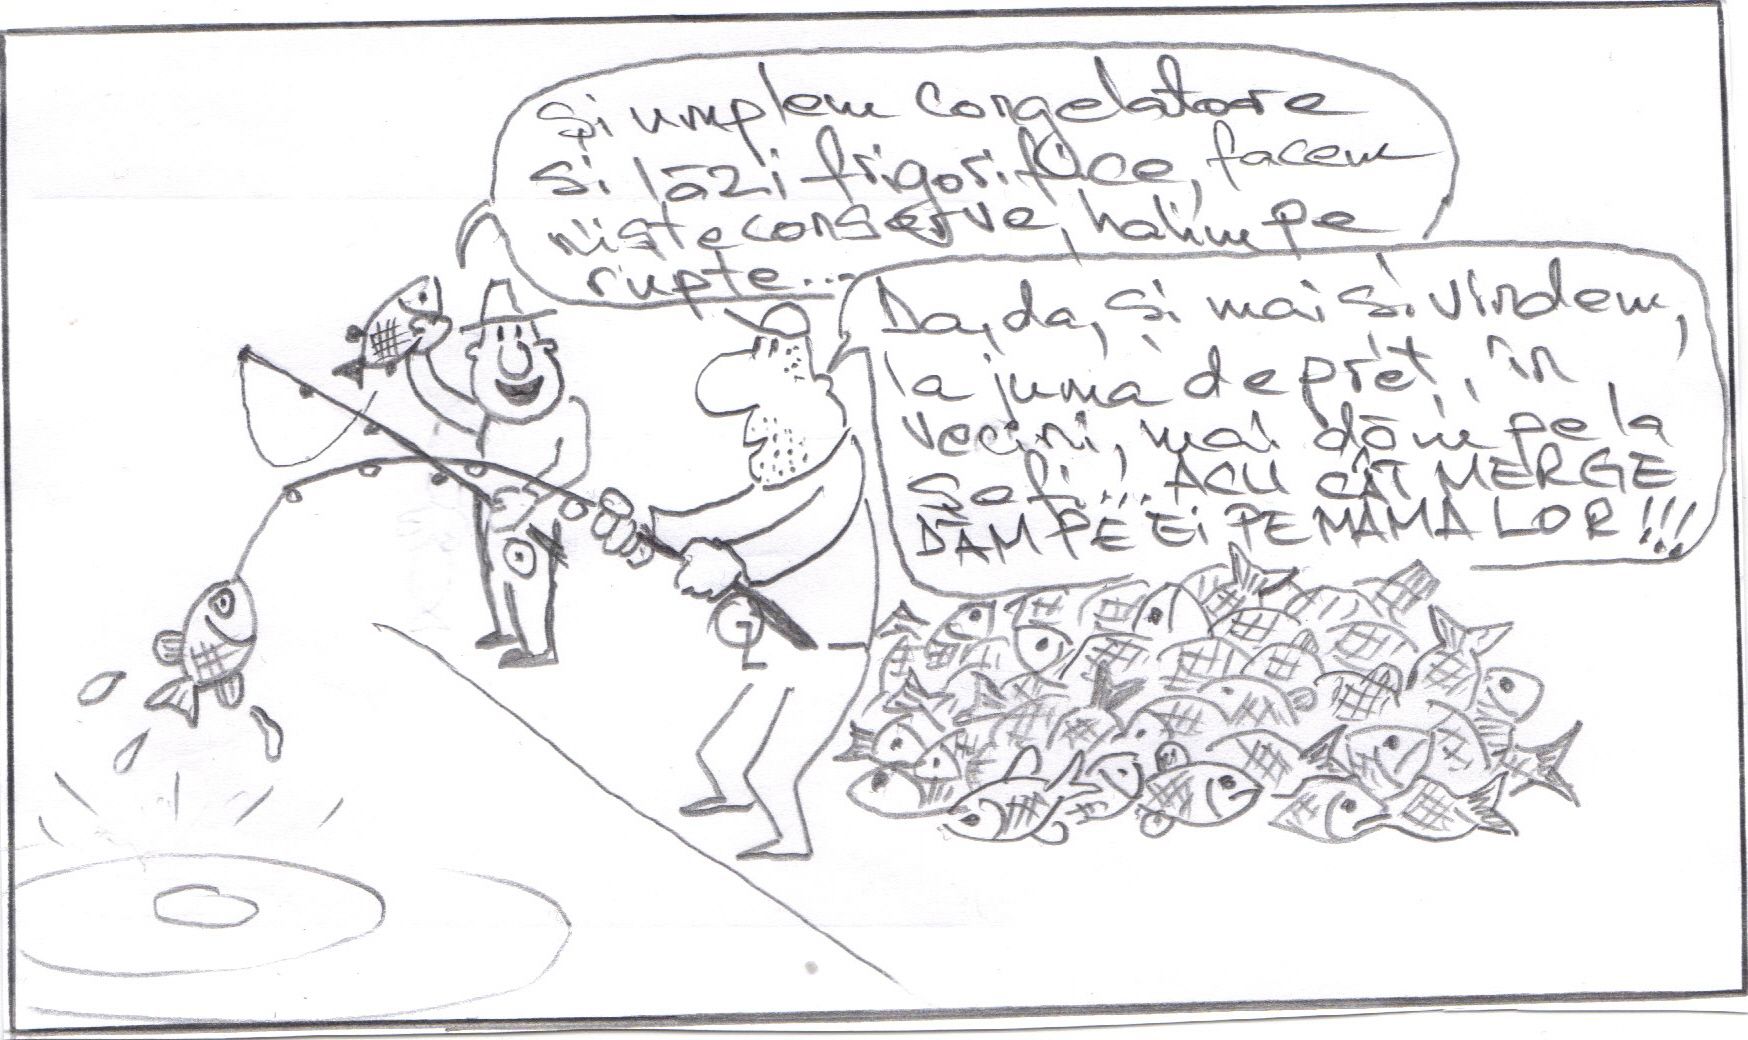 Și umplem congelatoare
și lăzi frigorifice, facem
niște conserve, halim pe
rupte...
Da, da, și mai și vindem,
la juma de preț, în
vecini, mai dăm pe la
șefi... ACU CÂT MERGE
DĂM PE EI PE MAMA LOR!!!